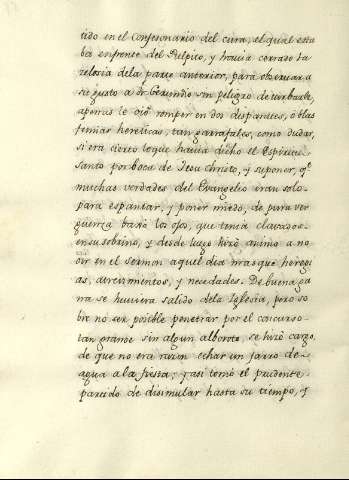 tido en el Confesonario del cura, el qual esta
ba enfrente del Pulpito, y havia cerrado la
zelosia dela parte anterior, para observar a
su gusto a Dn Gerundio sin peligro de turbarle,
apenas le oiò romper en dos disparates, o blas
femias hereticas, tan garrafales, como dudar,
si era cierto loque havia dicho el Espiritu
Santo por boca de Jesu Christo, y suponer, qe
muchas verdades del Evangelio eran solo
para espantar, y poner miedo, de pura ver
guenza baxò los ojos, que tenia clavados
en su sobrino, y desde luego hizò animo a no
oir en el sermon aquel dia mas que heregi
as, atrevimientos, y necedades. De buena ga
na se huviera salido dela Iglesia, pero so
bre no ser posible penetrar por el concurso
tan grande sin algun alboroto, se hizò cargo,
de que no era razon echar un jarro de
agua a la fiesta; y asi tomò el prudente
partido de disimular hasta su tiempo, y